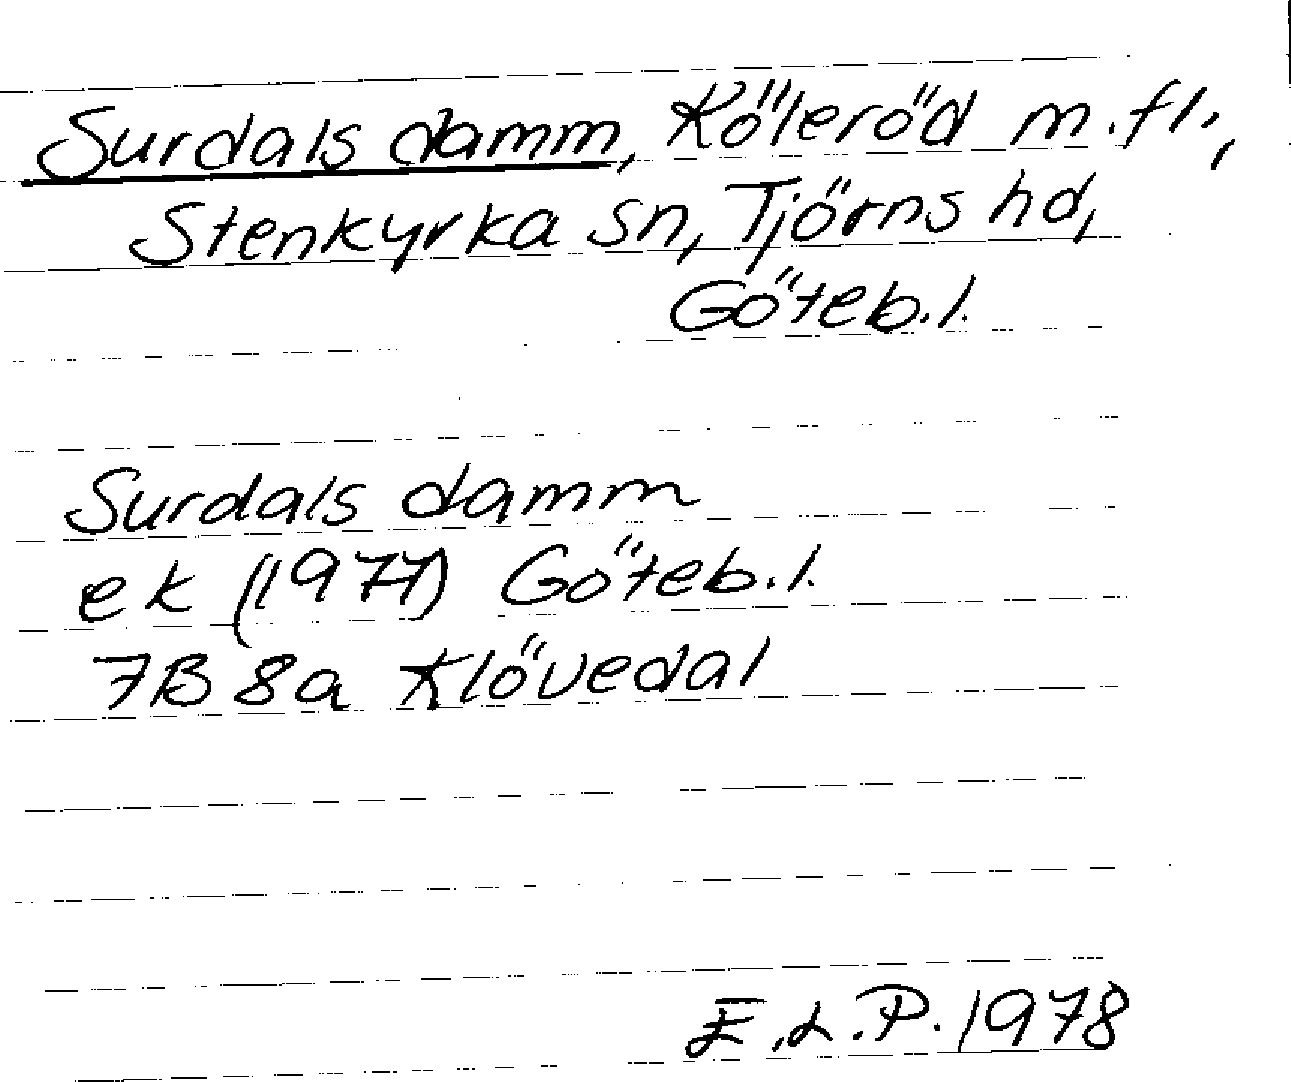 Surdals damm, Köleröd m.fl.,
Stenkyrka sn, Tjörns hd,
Göteb.l.
Surdals damm
ek (1977) Göteb.l.
7B 8a Klövedal
E.L.P. 1978